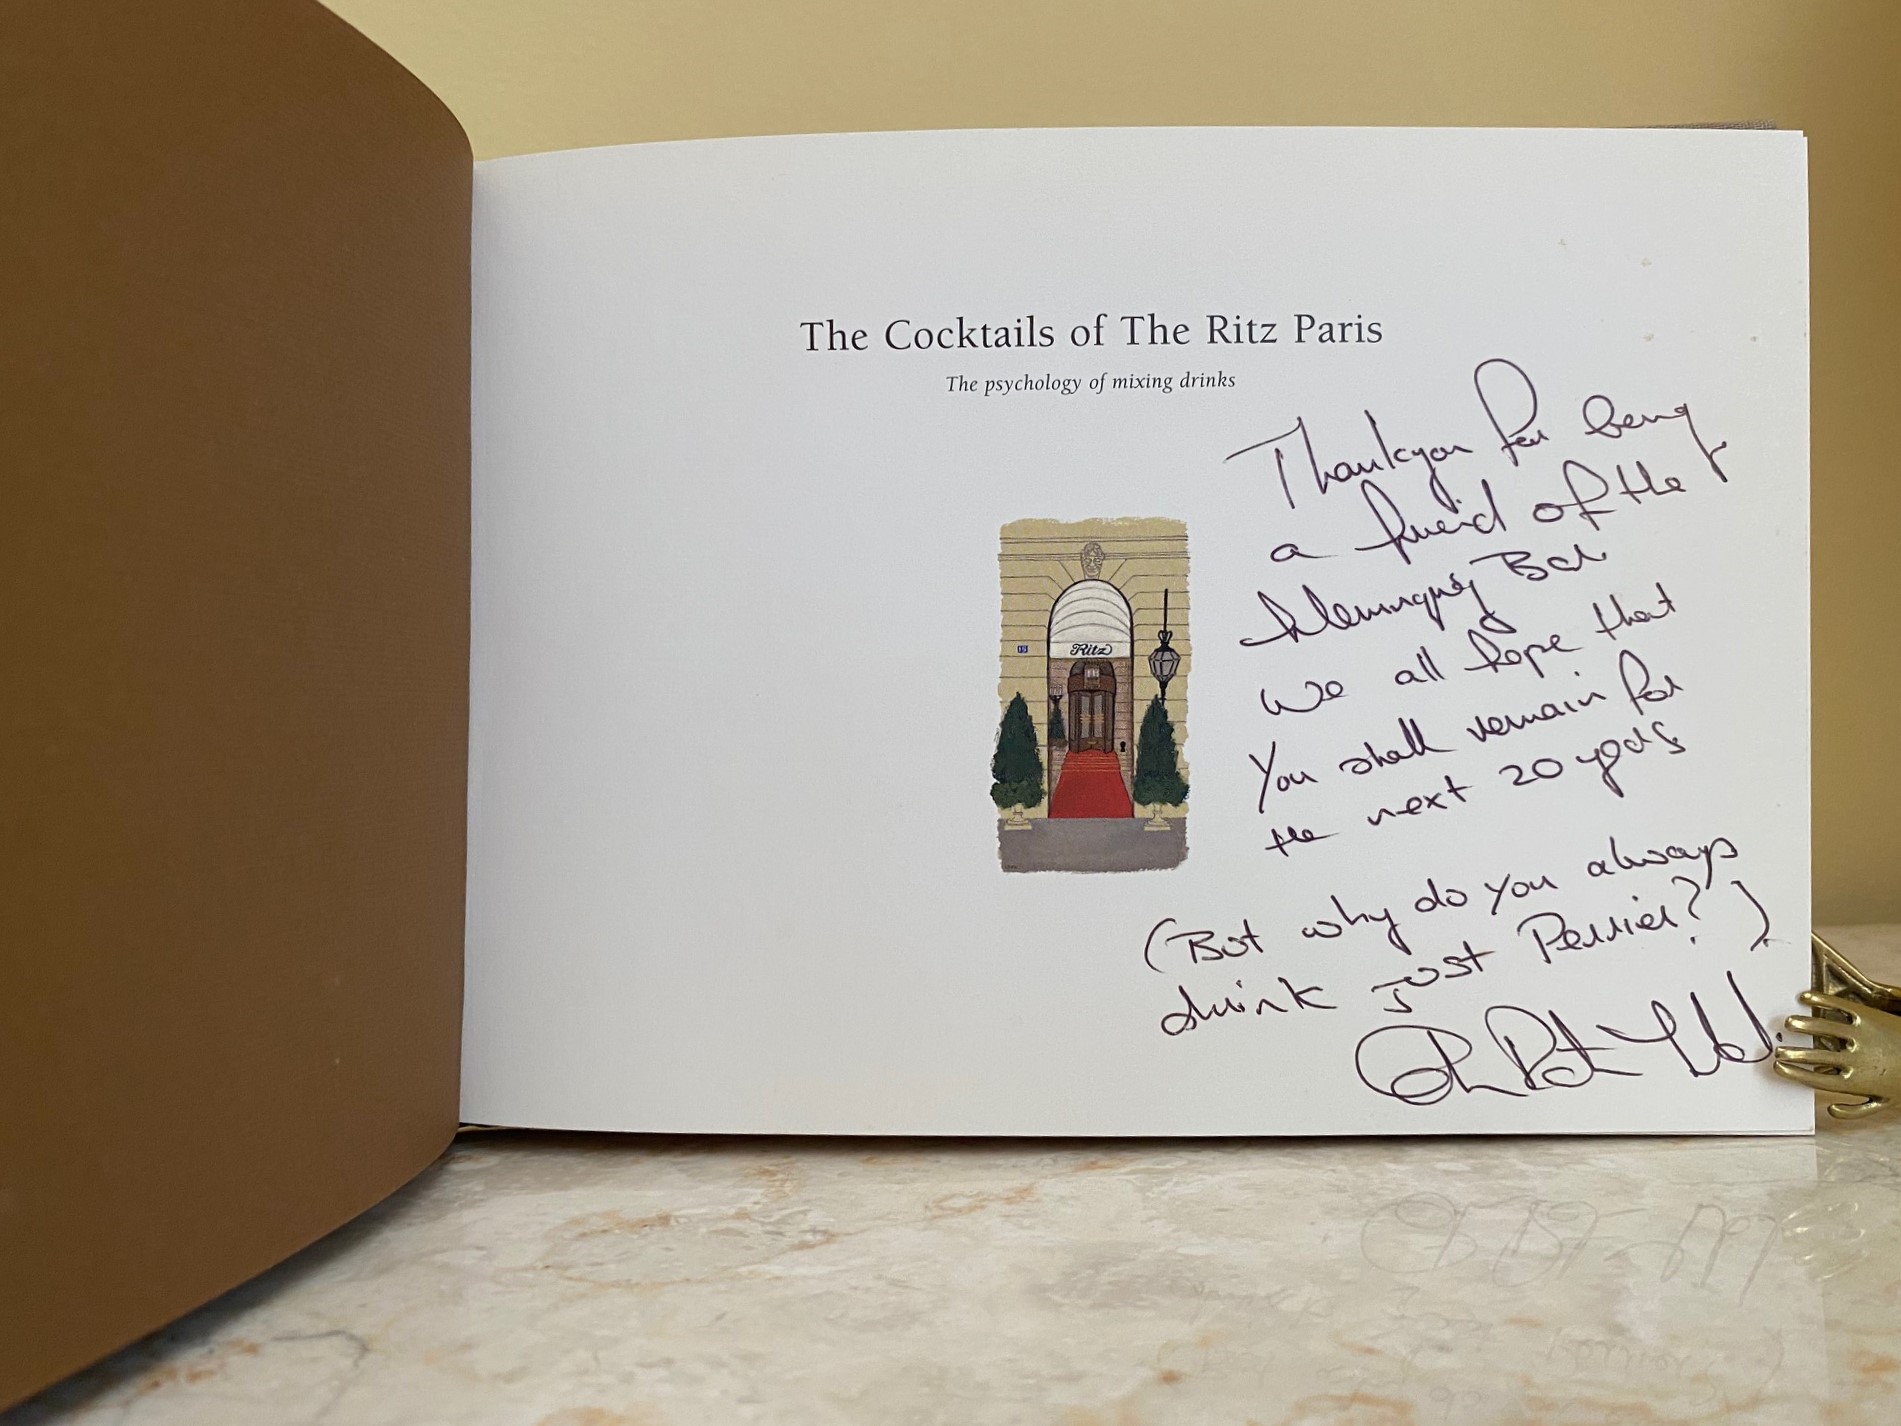 The Cocktails of The Ritz Paris
The psychology of mixing drinks
Ritz
15
Thankyou for being
a freind of the
Hemingway Bar
We all hope that
You shall remain for
the next 20 years
(But why do you always
drink just Perrier?)